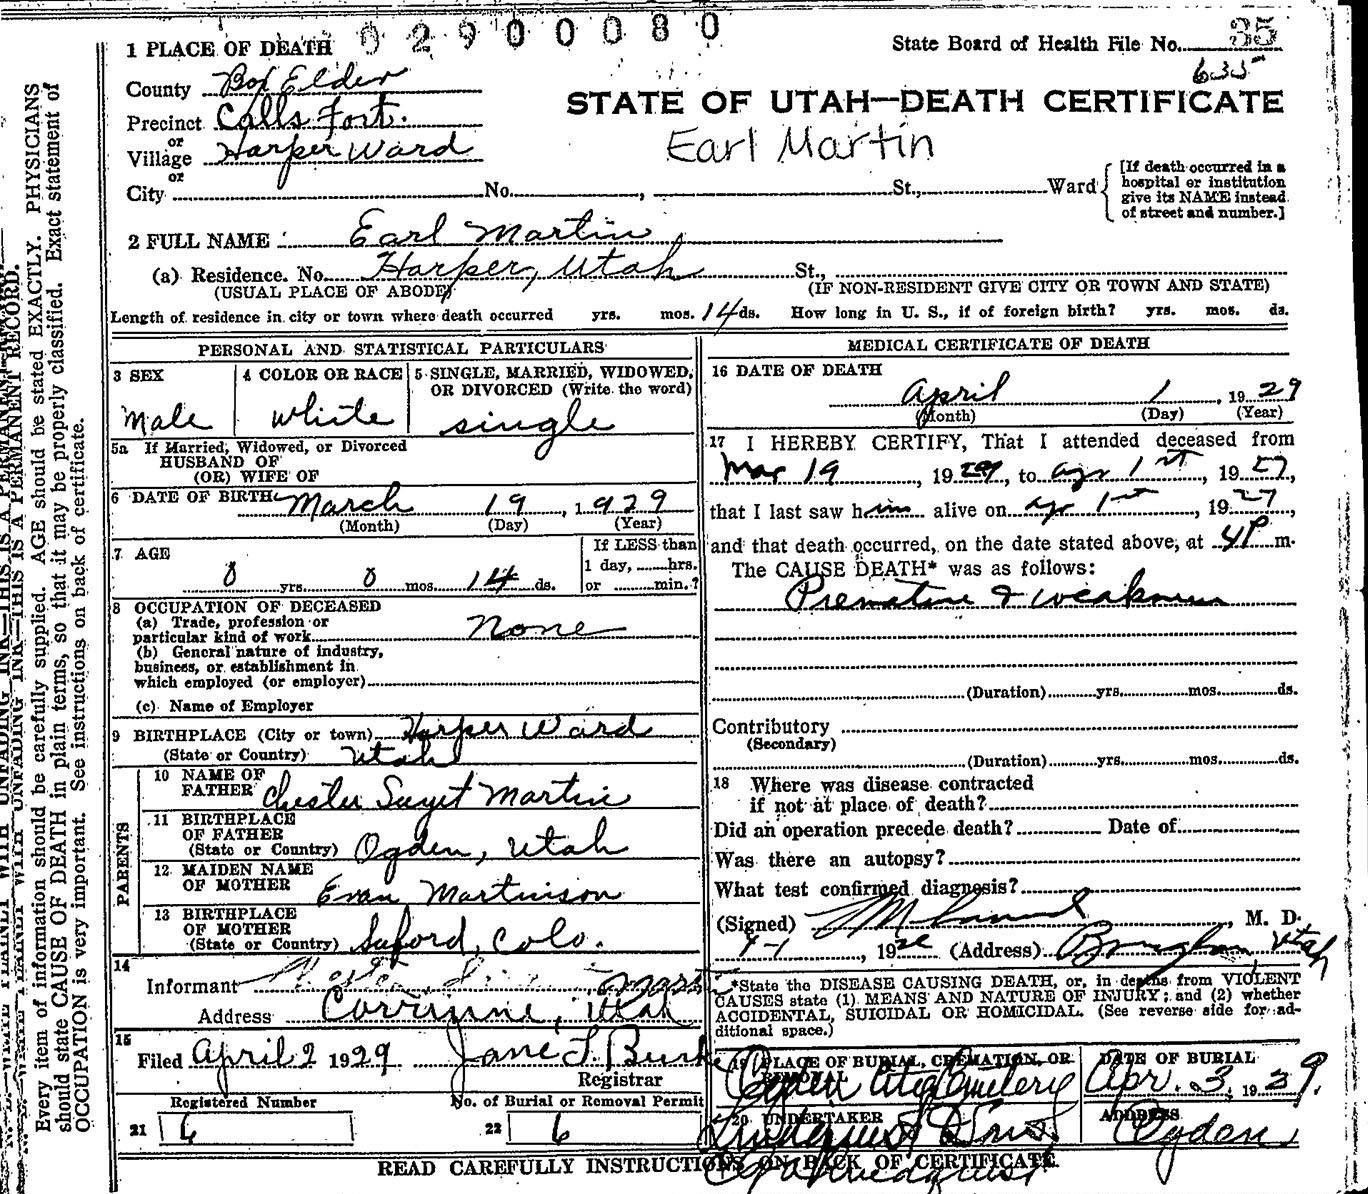 02900080
State Board of Health File No. 35
635
1 PLACE OF DEATH
County Box Elder
Precinct Calls Fort.
or
Village Harper Ward
or
City No. , St., Ward
STATE OF UTAH—DEATH CERTIFICATE
Earl Martin
[If death occurred in a
hospital or institution
give its NAME instead
of street and number.]
2 FULL NAME Earl Martin
(a) Residence. No. Harper, Utah St.,
(USUAL PLACE OF ABODE) (IF NON-RESIDENT GIVE CITY OR TOWN AND STATE)
Length of residence in city or town where death occurred yrs. mos. 14 ds. How long in U. S., if of foreign birth? yrs. mos. ds.
PERSONAL AND STATISTICAL PARTICULARS
3 SEX
Male
4 COLOR OR RACE
White
5 SINGLE, MARRIED, WIDOWED,
OR DIVORCED (Write the word)
single
5a If Married, Widowed, or Divorced
HUSBAND OF
(OR) WIFE OF
6 DATE OF BIRTH March 19, 1929
(Month) (Day) (Year)
7 AGE
0 yrs. 0 mos. 14 ds.
If LESS than
1 day, hrs.
or min.?
8 OCCUPATION OF DECEASED
(a) Trade, profession or
particular kind of work None
(b) General nature of industry,
business, or establishment in
which employed (or employer)
(c) Name of Employer
9 BIRTHPLACE (City or town) Harper Ward
(State or Country) Utah
PARENTS
10 NAME OF
FATHER Chester Martin
11 BIRTHPLACE
OF FATHER
(State or Country) Ogden, Utah
12 MAIDEN NAME
OF MOTHER Evan Martinison
13 BIRTHPLACE
OF MOTHER
(State or Country) Saford, Colo.
14
Informant Martin
Address Corrinne, Utah
15
Filed April 2 1929 Jane L. Burk
Registrar
Registered Number No. of Burial or Removal Permit
21 6 22 6
MEDICAL CERTIFICATE OF DEATH
16 DATE OF DEATH
April 1, 1929
(Month) (Day) (Year)
17 I HEREBY CERTIFY, That I attended deceased from
Mar 19, 1929, to apr 1st, 1927,
that I last saw him alive on apr 1st, 1927,
and that death occurred, on the date stated above, at 4P m.
The CAUSE DEATH* was as follows:
Premature & weakness
(Duration) yrs. mos. ds.
Contributory
(Secondary)
(Duration) yrs. mos. ds.
18 Where was disease contracted
if not at place of death?
Did an operation precede death? Date of
Was there an autopsy?
What test confirmed diagnosis?
(Signed) , M. D.
4-1 19 (Address) Brigham, Utah
*State the DISEASE CAUSING DEATH, or, in deaths from VIOLENT
CAUSES state (1) MEANS AND NATURE OF INJURY; and (2) whether
ACCIDENTAL, SUICIDAL OR HOMICIDAL. (See reverse side for ad-
ditional space.)
19 PLACE OF BURIAL, CREMATION, OR
REMOVAL
Ogden City Cemetery
DATE OF BURIAL
Apr. 3, 1929.
20 UNDERTAKER
Lindquist & Sons
ADDRESS
Ogden
READ CAREFULLY INSTRUCTIONS ON BACK OF CERTIFICATE
Every item of information should be carefully supplied. AGE should be stated EXACTLY. PHYSICIANS
should state CAUSE OF DEATH in plain terms, so that it may be properly classified. Exact statement of
OCCUPATION is very important. See instructions on back of certificate.